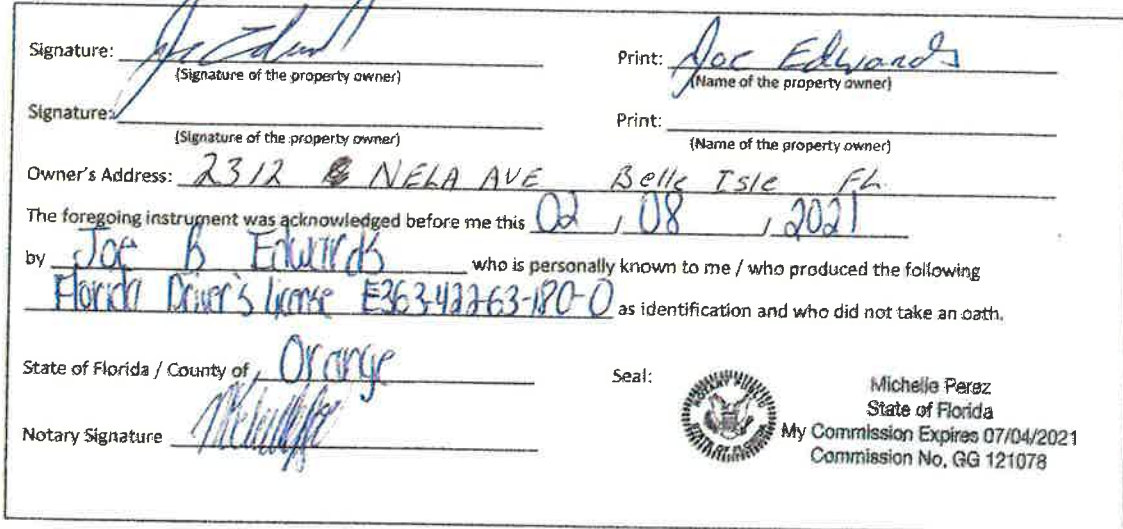 Signature: Joe Edwards Print: Joe Edwards
(Signature of the property owner) (Name of the property owner)
Signature: Print:
(Signature of the property owner) (Name of the property owner)
Owner's Address: 2312 NELA AVE Belle Isle FL
The foregoing instrument was acknowledged before me this 02 / 08 / 2021
by Joe B Edwards who is personally known to me / who produced the following
Florida Driver's license E363-422-63-180-0 as identification and who did not take an oath.
State of Florida / County of Orange Seal:
Notary Signature
NOTARY PUBLIC
STATE OF FLORIDA
Michelle Perez
State of Florida
My Commission Expires 07/04/2021
Commission No. GG 121078